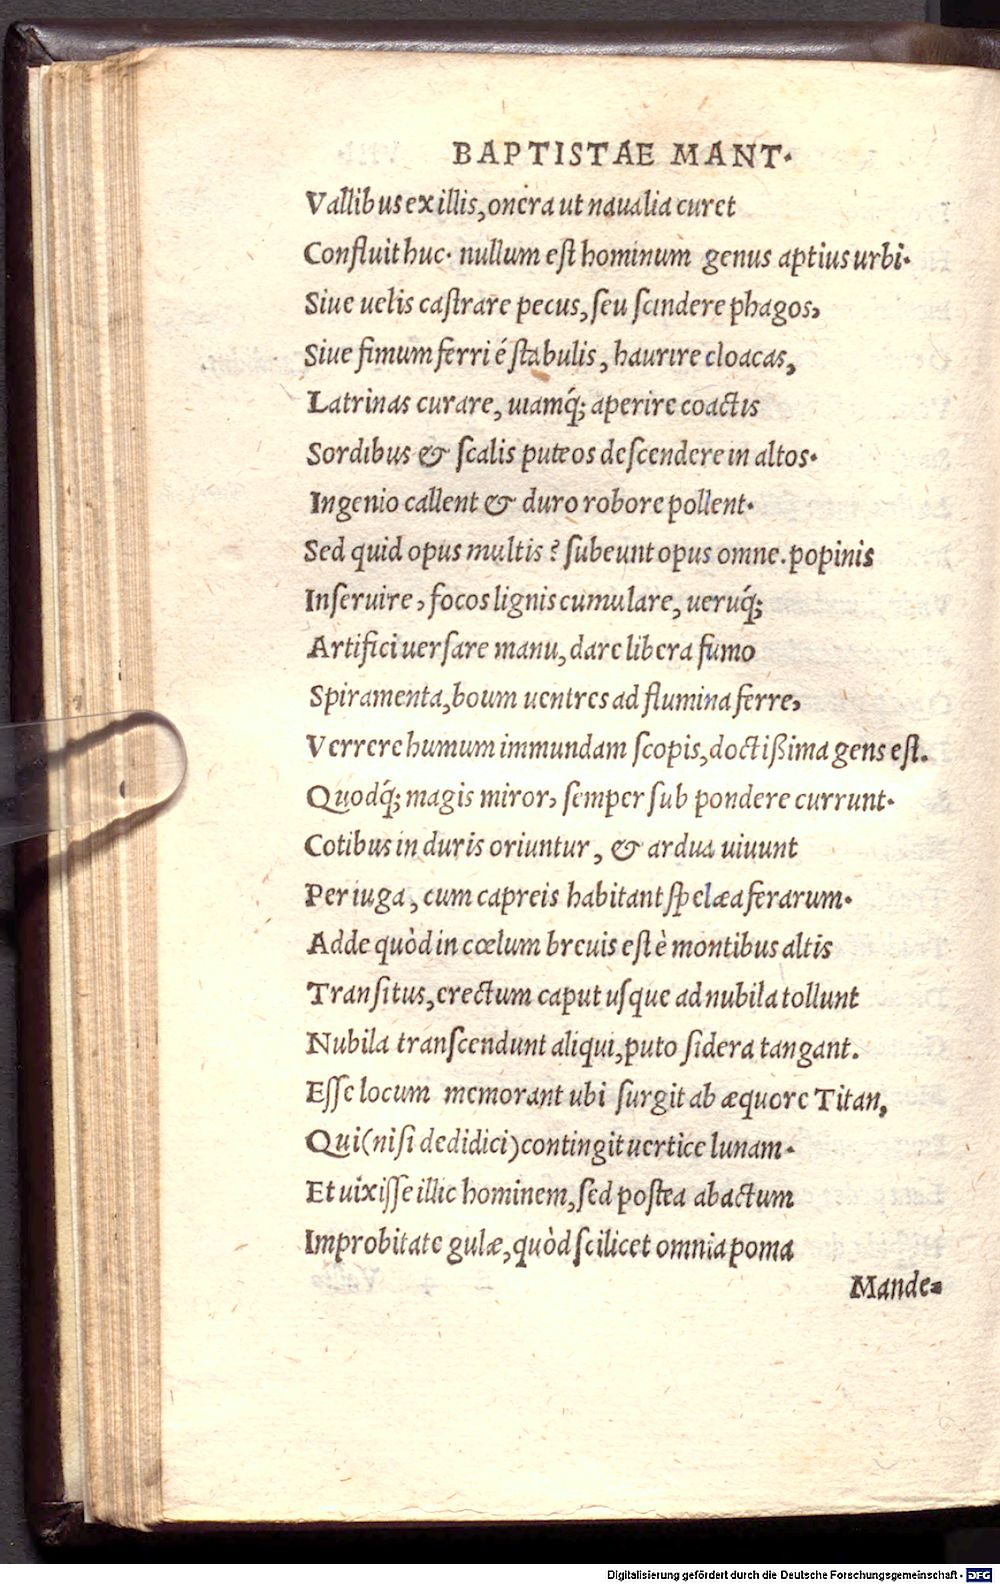 BAPTISTAE MANT.
Vallibus ex illis, onera ut naualia curet
Confluit huc. nullum est hominum genus aptius urbi.
Siue uelis castrare pecus, seu scindere phagos,
Siue fimum ferri é stabulis, haurire cloacas,
Latrinas curare, uiamq́; aperire coactis
Sordibus & scalis puteos descendere in altos.
Ingenio callent & duro robore pollent.
Sed quid opus multis? subeunt opus omne. popinis
Inseruire, focos lignis cumulare, ueruq́;
Artifici uersare manu, dare libera fumo
Spiramenta, boum uentres ad flumina ferre,
Verrere humum immundam scopis, doctißima gens est.
Quodq́; magis miror, semper sub pondere currunt.
Cotibus in duris oriuntur, & ardua uiuunt
Per iuga, cum capreis habitant spelæa ferarum.
Adde quòd in cœlum breuis est è montibus altis
Transitus, erectum caput usque ad nubila tollunt
Nubila transcendunt aliqui, puto sidera tangant.
Esse locum memorant ubi surgit ab æquore Titan,
Qui (nisi dedidici) contingit uertice lunam.
Et uixisse illic hominem, sed postea abactum
Improbitate gulæ, quòd scilicet omnia poma
Mande-
Digitalisierung gefördert durch die Deutsche Forschungsgemeinschaft - DFG